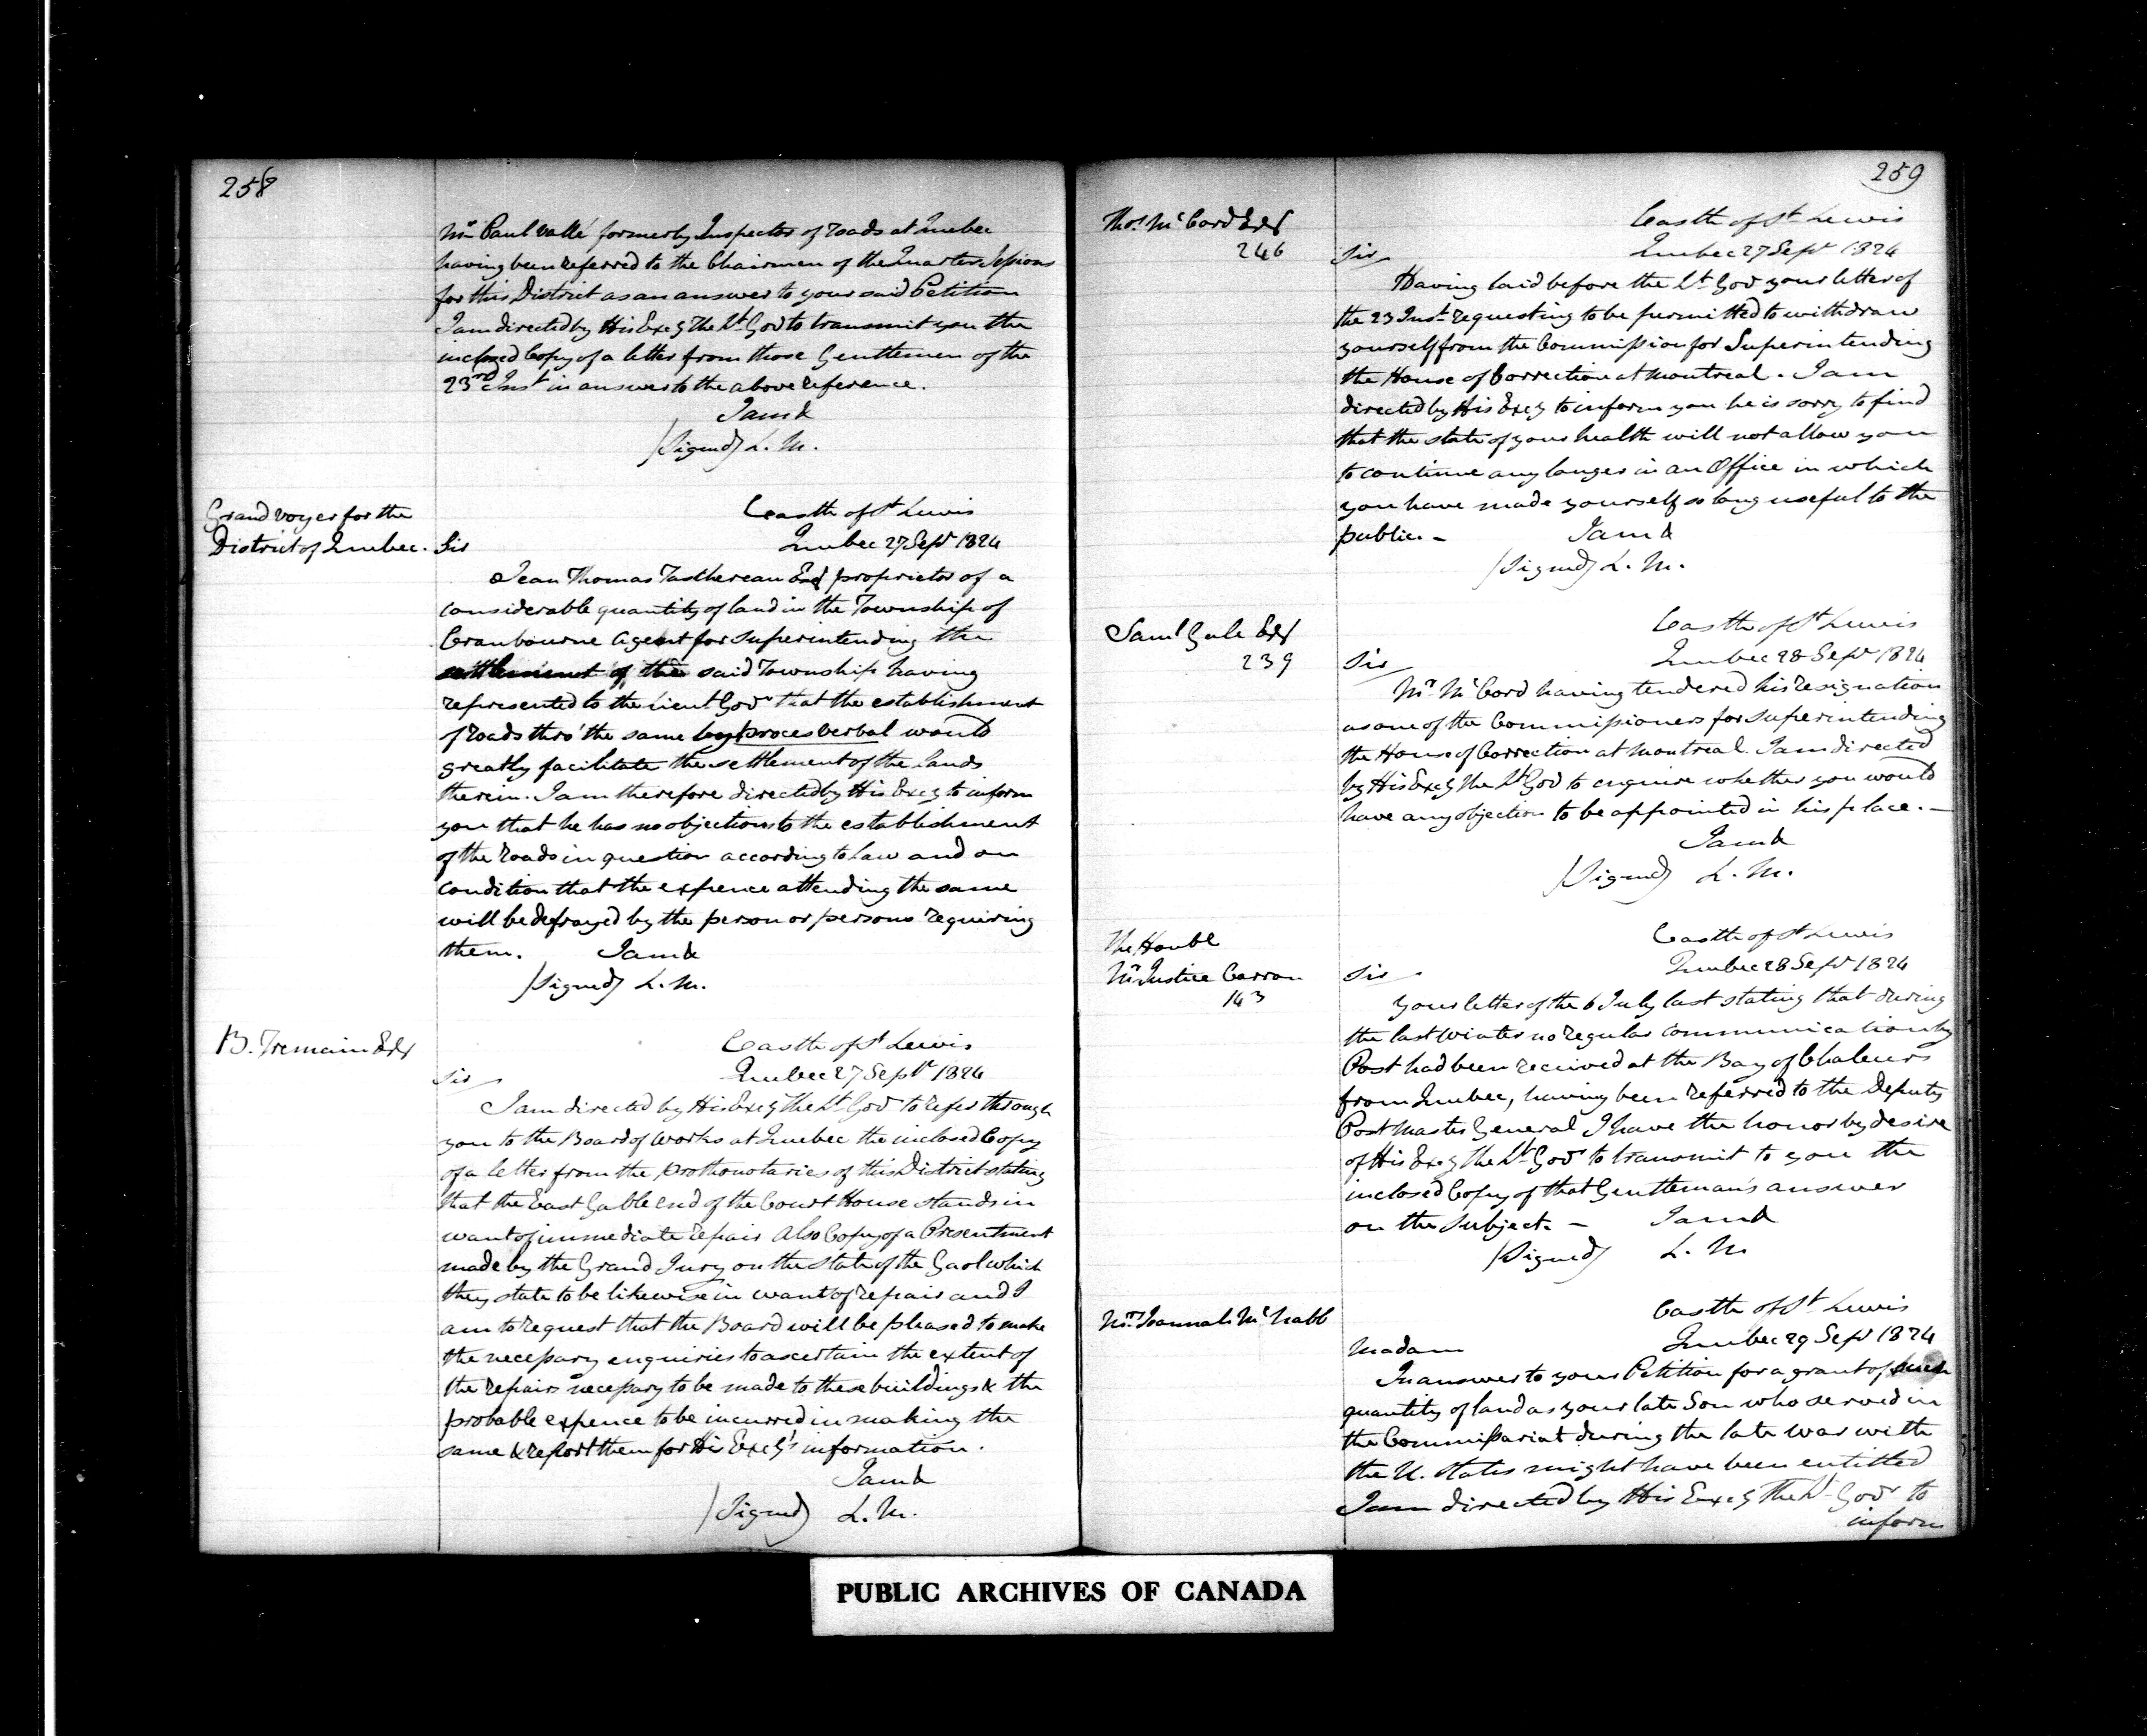 258
Mr. Paul Vallé formerly Inspector of roads at Quebec
having been referred to the Chairmen of the Quarter Sessions
for this District as an answer to your said Petition
I am directed by His Excy the Lt. Govr to transmit you the
inclosed Copy of a letter from those Gentlemen of the
23rd Inst in answer to the above reference.
I am &
(Signed) L. M.
Grand voyer for the
District of Quebec.
Castle of St Lewis
Quebec 27 Sept 1824
Sir
Jean Thomas Taschereau Esqr proprietor of a
considerable quantity of land in the Township of
Cranbourne Agent for superintending the
settlement of the said Township having
represented to the Lieut Govr that the establishment
of roads thro' the same by proces verbal would
greatly facilitate the settlement of the Lands
therein. I am therefore directed by His Excy to inform
you that he has no objections to the establishment
of the roads in question according to Law and on
condition that the expence attending the same
will be defrayed by the person or persons requiring
them. I am &
(Signed) L. M.
B. Tremain Esqr
Castle of St Lewis
Quebec 27 Sept 1824
Sir
I am directed by His Excy the Lt. Govr to refer through
you to the Board of Works at Quebec the inclosed Copy
of a letter from the prothonotaries of this District stating
that the East Gable end of the Court House stands in
want of immediate repair Also Copy of a Presentment
made by the Grand Jury on the state of the Gaol which
they state to be likewise in want of repair and I
am to request that the Board will be pleased to make
the necessary enquiries to ascertain the extent of
the repairs necessary to be made to these buildings & the
probable expence to be incurred in making the
same & report them for His Excy's information.
I am &
(Signed) L. M.
259
Thos. McCord Esqr
246
Castle of St Lewis
Quebec 27 Sept 1824
Sir
Having laid before the Lt Govr your letter of
the 23 Inst requesting to be permitted to withdraw
yourself from the Commission for Superintending
the House of Correction at Montreal. I am
directed by His Excy to inform you he is sorry to find
that the state of your health will not allow you
to continue any longer in an Office in which
you have made yourself so long useful to the
public. - I am &
(Signed) L. M.
Saml Gale Esqr
239
Castle of St Lewis
Quebec 28 Sept 1824
Sir
Mr. McCord having tendered his resignation
as one of the Commissioners for superintending
the House of Correction at Montreal. I am directed
by His Excy the Lt Govr to enquire whether you would
have any objection to be appointed in his place. -
I am &
(Signed) L. M.
The Honble
Mr Justice Carron
143
Castle of St Lewis
Quebec 28 Sept 1824
Sir
Your letter of the 6 July last stating that during
the last winter no regular communication by
Post had been received at the Bay of Chaleurs
from Quebec, having been referred to the Deputy
Post Master General I have the honor by desire
of His Excy the Lt Govr to transmit to you the
inclosed Copy of that Gentleman's answer
on the subject. - I am &
(Signed) L. M
Mrs. Joannah McNabb
Castle of St Lewis
Quebec 29 Sept 1824
Madam
In answer to your Petition for a grant of such
quantity of land as your late Son who served in
the Commissariat during the late war with
the U. States might have been entitled
I am directed by His Excy the Lt Govr to
inform
PUBLIC ARCHIVES OF CANADA